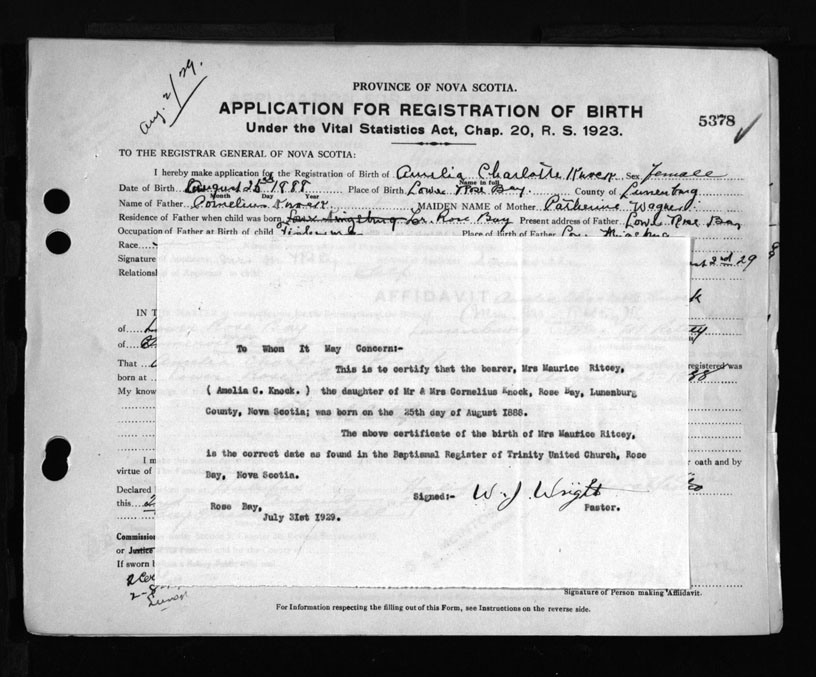 Aug. 2/29.
PROVINCE OF NOVA SCOTIA.
APPLICATION FOR REGISTRATION OF BIRTH
5378
Under the Vital Statistics Act, Chap. 20, R. S. 1923.
TO THE REGISTRAR GENERAL OF NOVA SCOTIA:
I hereby make application for the Registration of Birth of Amelia Charlotte Knock Sex Female
Name in full
Date of Birth August 25 1888 Place of Birth Lower Rose Bay. County of Lunenburg
Month Day Year
Name of Father Cornelius Knock MAIDEN NAME of Mother Catherine Wagner
Residence of Father when child was born Lr. Rose Bay Present address of Father Lower Rose Bay
Occupation of Father at Birth of child Place of Birth of Father
Race
Signature 2nd 29
Relationsh
AFFIDAVIT
IN T
of
of
That registered was
born at
My know
To Whom It May Concern:-
This is to certify that the bearer, Mrs Maurice Ritcey,
( Amelia C. Knock. ) the daughter of Mr & Mrs Cornelius Knock, Rose Bay, Lunenburg
County, Nova Scotia; was born on the 25th day of August I888.
The above certificate of the birth of Mrs Maurice Ritcey,
is the correct date as found in the Baptismal Register of Trinity United Church, Rose
Bay, Nova Scotia.
Signed:- W. J. Wright
Pastor.
Rose Bay,
July 3Ist I929.
I m er oath and by
virtue of
Declared
this
Commission
or Justice
If sworn b
Signature of Person making Affidavit.
For Information respecting the filling out of this Form, see Instructions on the reverse side.